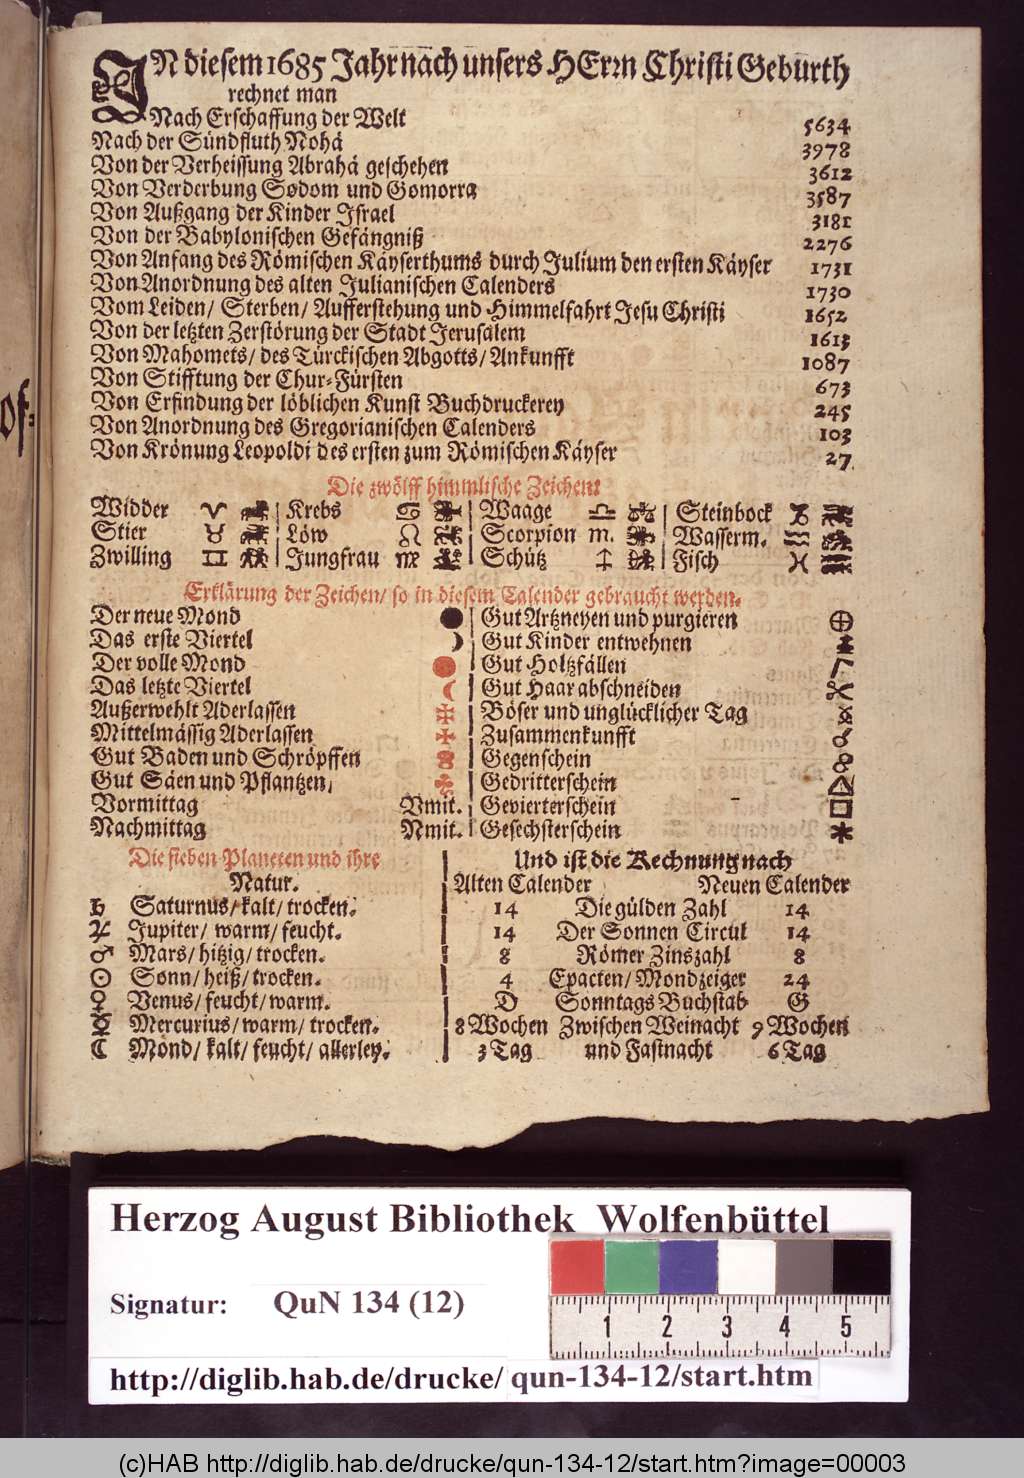 IN diesem 1685 Jahr nach unsers HErrn Christi Gebürth
rechnet man
Nach Erschaffung der Welt 5634
Nach der Sündfluth Nohä 3978
Von der Verheissung Abrahä geschehen 3612
Von Verderbung Sodom und Gomorra 3587
Von Außgang der Kinder Israel 3181
Von der Babylonischen Gefängniß 2276
Von Anfang des Römischen Käyserthums durch Julium den ersten Käyser 1731
Von Anordnung des alten Julianischen Calenders 1730
Vom Leiden/ Sterben/ Aufferstehung und Himmelfahrt Jesu Christi 1652
Von der letzten Zerstörung der Stadt Jerusalem 1613
Von Mahomets/ des Türckischen Abgotts/ Ankunfft 1087
Von Stifftung der Chur-Fürsten 673
Von Erfindung der löblichen Kunst Buchdruckerey 245
Von Anordnung des Gregorianischen Calenders 103
Von Krönung Leopoldi des ersten zum Römischen Käyser 27.
Die zwölff himmlische Zeichen:
Widder ♈ | Krebs ♋ | Waage ♎ | Steinbock ♑
Stier ♉ | Löw ♌ | Scorpion ♏ | Wasserm. ♒
Zwilling ♊ | Jungfrau ♍ | Schütz ♐ | Fisch ♓
Erklärung der Zeichen/ so in diesem Calender gebraucht werden.
Der neue Mond | Gut Artzneyen und purgieren
Das erste Viertel | Gut Kinder entwehnen
Der volle Mond | Gut Holtzfällen
Das letzte Viertel | Gut Haar abschneiden
Außerwehlt Aderlassen | Böser und unglücklicher Tag
Mittelmässig Aderlassen | Zusammenkunfft ☌
Gut Baden und Schröpffen | Gegenschein ☍
Gut Säen und Pflantzen | Gedritterschein △
Vormittag Vmit. | Gevierterschein □
Nachmittag Nmit. | Gesechsterschein ✱
Die sieben Planeten und ihre
Natur.
♄ Saturnus/ kalt/ trocken.
♃ Jupiter/ warm/ feucht.
♂ Mars/ hitzig/ trocken.
☉ Sonn/ heiß/ trocken.
♀ Venus/ feucht/ warm.
☿ Mercurius/ warm/ trocken.
☾ Mond/ kalt/ feucht/ allerley.
Und ist die Rechnung nach
Alten Calender Neuen Calender
14 Die gülden Zahl 14
14 Der Sonnen Circul 14
8 Römer Zinszahl 8
4 Epacten/ Mondzeiger 24
D Sonntags Buchstab G
8 Wochen Zwischen Weinacht 9 Wochen
3 Tag und Fastnacht 6 Tag
Herzog August Bibliothek Wolfenbüttel
Signatur: QuN 134 (12)
1 2 3 4 5
http://diglib.hab.de/drucke/ qun-134-12/start.htm
(c)HAB http://diglib.hab.de/drucke/qun-134-12/start.htm?image=00003